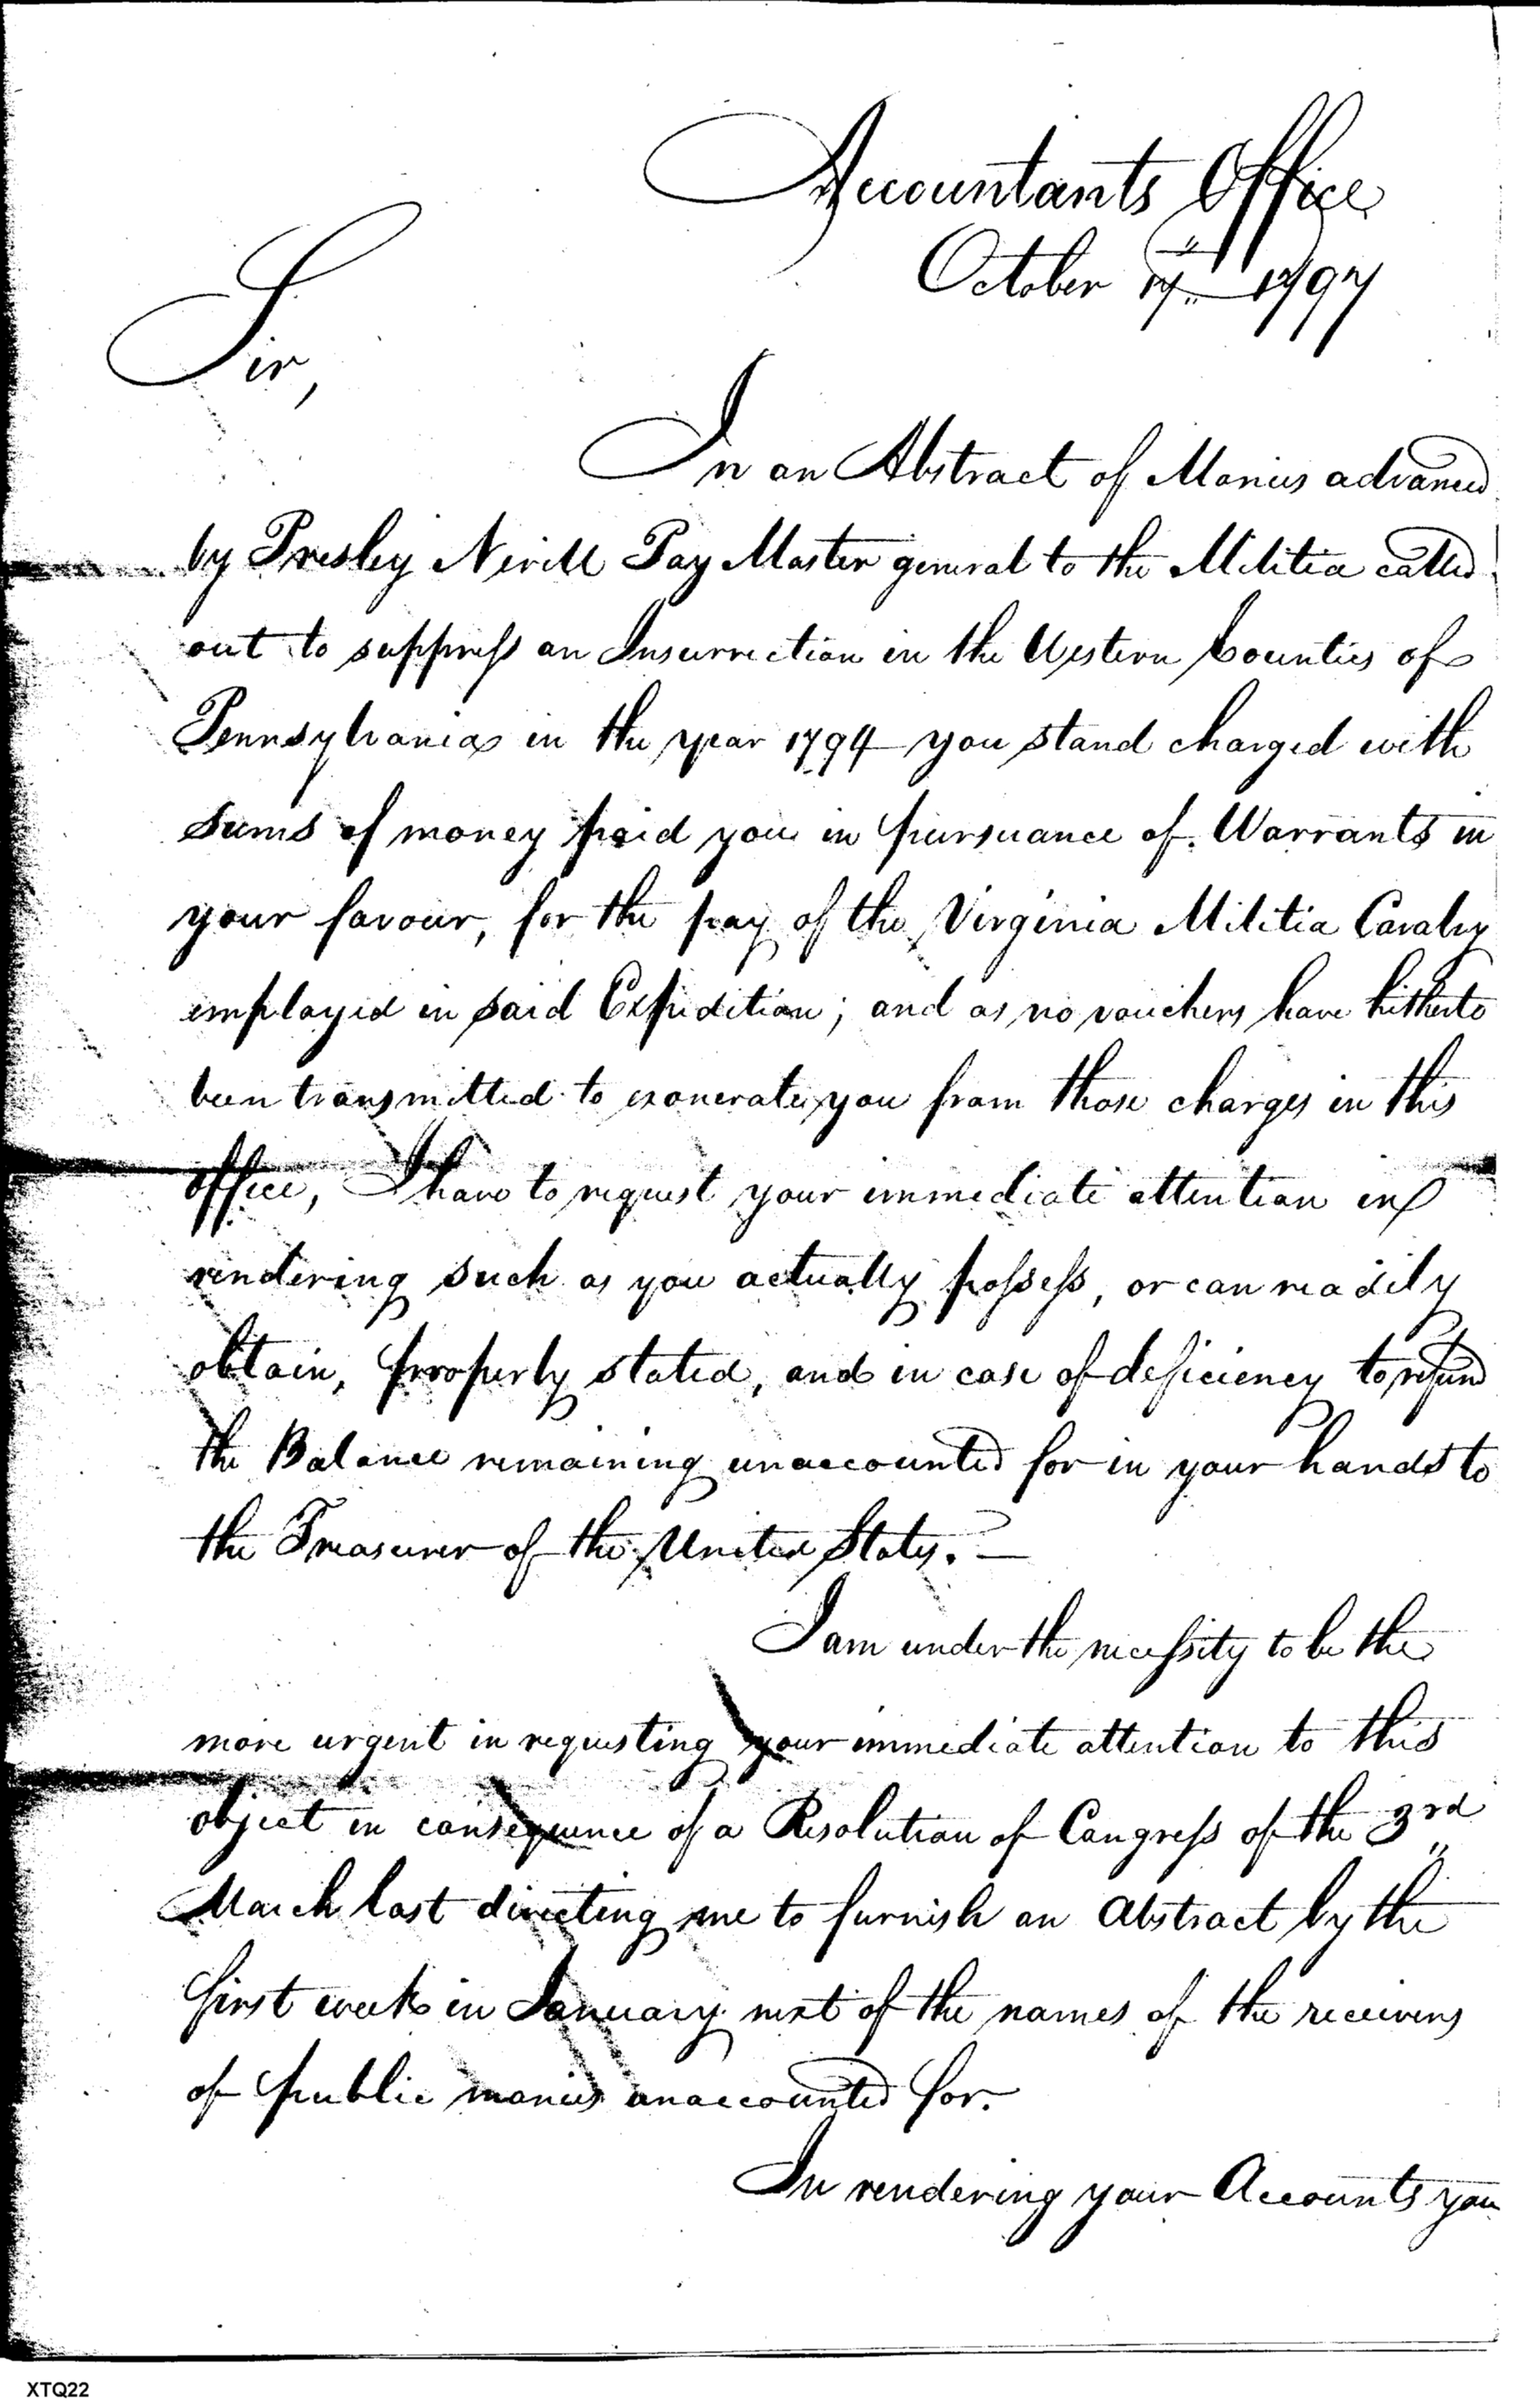 Accountants Office
October 17th 1797
Sir,
In an Abstract of Monies advanced
by Presley Nevill Pay Master general to the Militia called
out to suppress an Insurrection in the Western Counties of
Pennsylvania in the year 1794 you stand charged with
sums of money paid you in pursuance of Warrants in
your favour, for the pay of the Virginia Militia Cavalry
employed in said Expedition; and as no vouchers have hitherto
been transmitted to exonerate you from those charges in this
office, I have to request your immediate attention in
rendering such as you actually possess, or can readily
obtain, properly stated, and in case of deficiency to refund
the Balance remaining unaccounted for in your hands to
the Treasurer of the United States. —
I am under the necessity to be the
more urgent in requesting your immediate attention to this
object in consequence of a Resolution of Congress of the 3rd
March last directing me to furnish an Abstract by the
first week in January next of the names of the receivers
of public monies unaccounted for.
In rendering your Accounts you
XTQ22